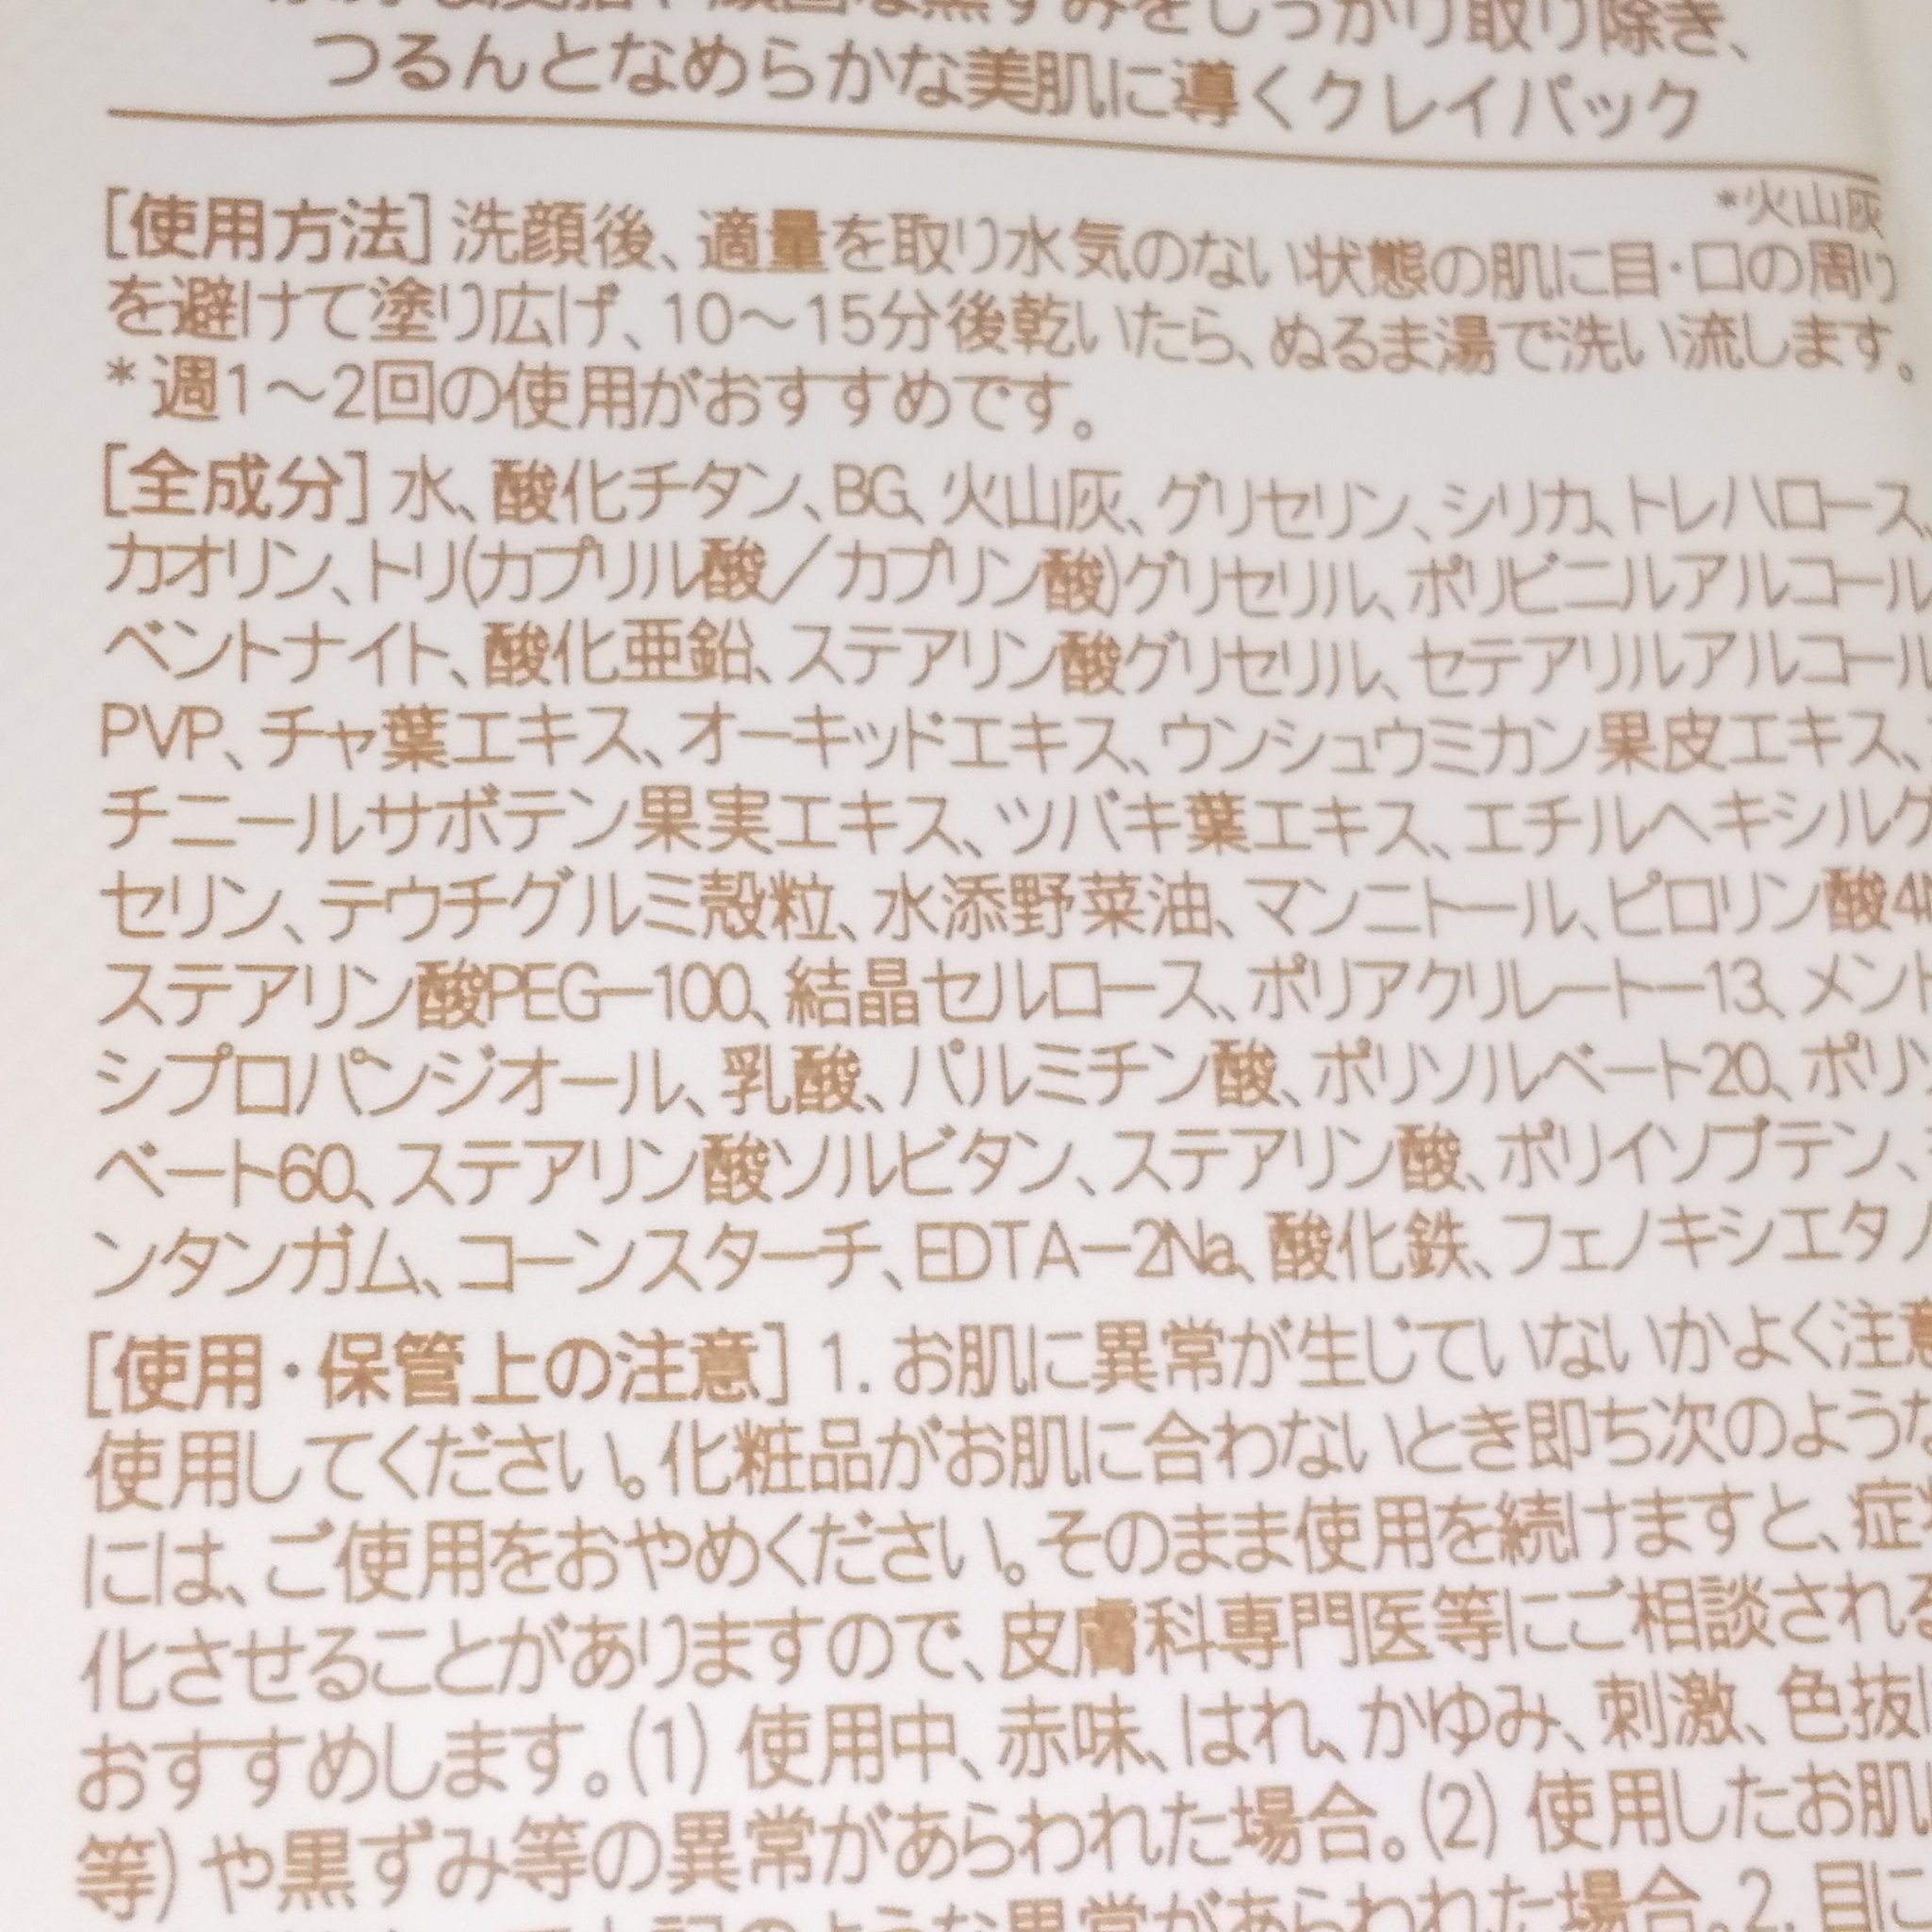 をしっかり取り除き、
つるんとなめらかな美肌に導くクレイパック
*火山灰
[使用方法] 洗顔後、適量を取り水気のない状態の肌に目・口の周り
を避けて塗り広げ、10～15分後乾いたら、ぬるま湯で洗い流します。
*週1～2回の使用がおすすめです。
[全成分] 水、酸化チタン、BG、火山灰、グリセリン、シリカ、トレハロース、
カオリン、トリ(カプリル酸/カプリン酸)グリセリル、ポリビニルアルコール
ベントナイト、酸化亜鉛、ステアリン酸グリセリル、セテアリルアルコール
PVP、チャ葉エキス、オーキッドエキス、ウンシュウミカン果皮エキス、
チニールサボテン果実エキス、ツバキ葉エキス、エチルヘキシルグ
セリン、テウチグルミ殻粒、水添野菜油、マンニトール、ピロリン酸4
ステアリン酸PEG-100、結晶セルロース、ポリアクリレート-13、メント
シプロパンジオール、乳酸、パルミチン酸、ポリソルベート20、ポリソ
ベート60、ステアリン酸ソルビタン、ステアリン酸、ポリイソブテン、
ンタンガム、コーンスターチ、EDTA-2Na、酸化鉄、フェノキシエタノ
[使用・保管上の注意] 1. お肌に異常が生じていないかよく注意
使用してください。化粧品がお肌に合わないとき即ち次のような
には、ご使用をおやめください。そのまま使用を続けますと、症状
化させることがありますので、皮膚科専門医等にご相談される
おすすめします。(1) 使用中、赤味、はれ、かゆみ、刺激、色抜け
等) や黒ずみ等の異常があらわれた場合。(2) 使用したお肌に
上記のような異常があらわれた場合。2. 目に